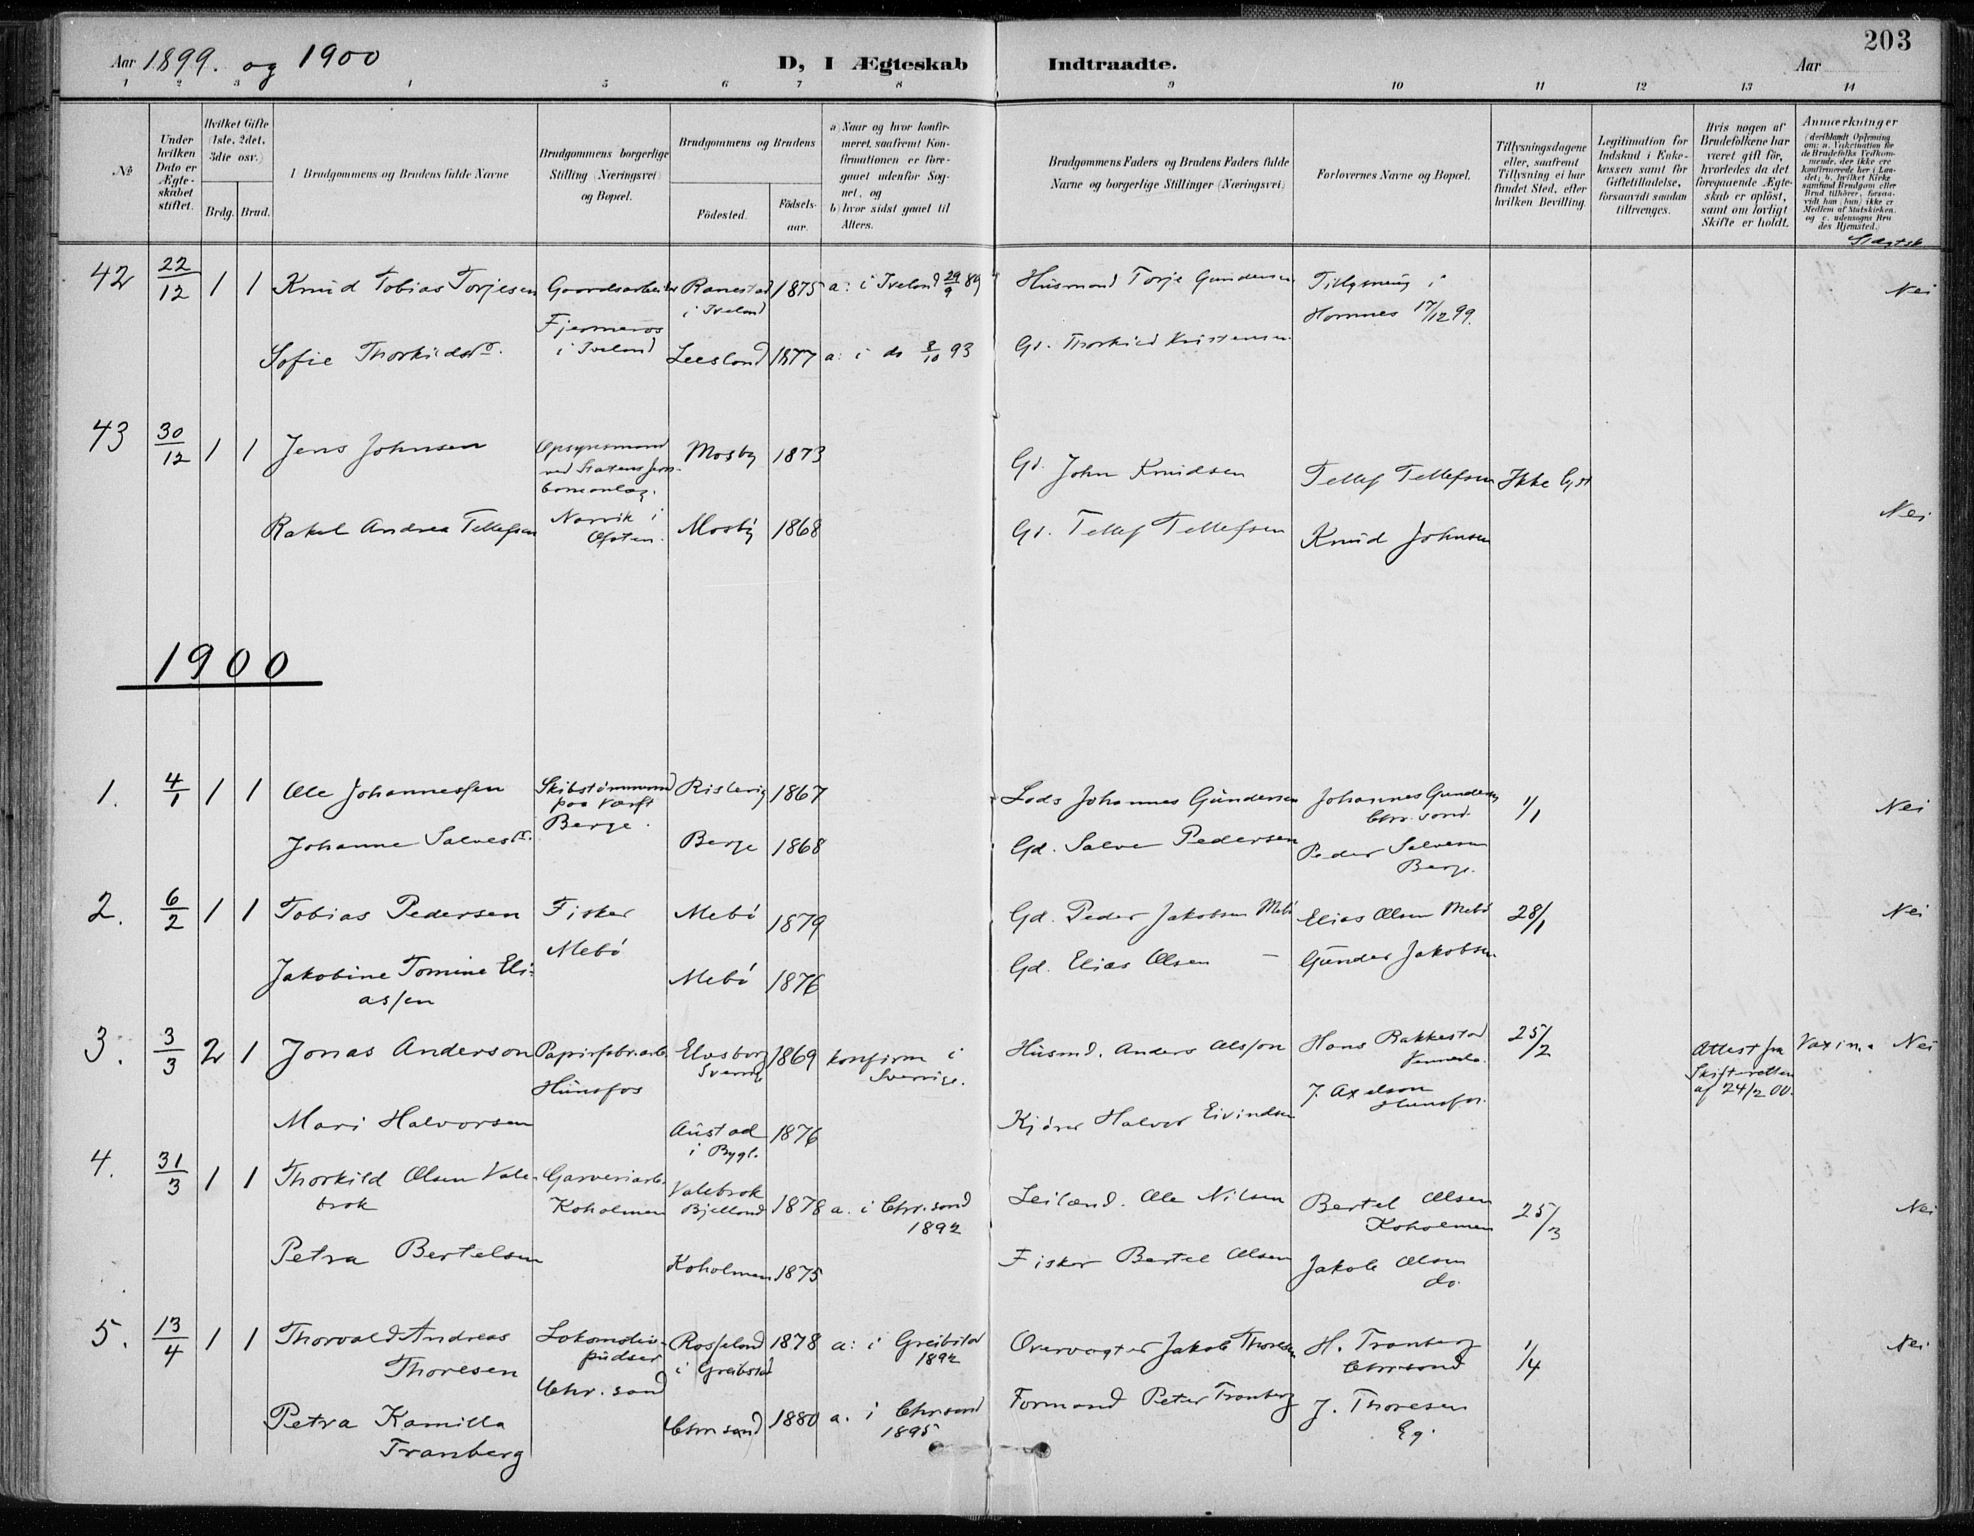 203
Aar 1899. og 1900
D, I Ægteskab Indtraadte.
Aar
1 2 3 4 5 6 7 8 9 10 11 12 13 14
№
Under hvilken Dato er Ægteskabet stiftet.
Hvilket Gifte (1ste, 2det, 3die osv.)
Brdg. Brud.
1 Brudgommens og Brudens fulde Navne
Brudgommens borgerlige Stilling (Næringsvei) og Bopæl.
Brudgommens og Brudens
Födested.
Födsels-aar.
a) Naar og hvor konfirmeret, saafremt Konfirmationen er foregaaet udenfor Sognet, og
b) hvor sidst gaaet til Alters.
Brudgommens Faders og Brudens Faders fulde Navne og borgerlige Stillinger (Næringsvei)
Forlovernes Navne og Bopæl.
Tillysningsdagene eller, saafremt Tillysning ei har fundet Sted, efter hvilken Bevilling.
Legitimation for Indskud i Enkekassen samt for Giftetilladelse, forsaavidt saadan tiltrænges.
Hvis nogen af Brudefolkene har været gift för, hvorledes da det foregaaende Ægteskab er oplöst, samt om lovligt Skifte er holdt.
Anmærkninger
(deriblandt Oplysning om: a. Vakcination for de Brudefolks Vedkommende, der ikke ere konfirmerede her i Landet; b. hvilket Kirkesamfund Brudgom eller Brud tilhörer, forsaavidt han (hun) ikke er Medlem af Statskirken, og c. udensogns Brudes Hjemsted.)
Slægtsk.
42 22/12 1 1 Knud Tobias Torjesen Gaardsarbeider Ranestad i Iveland 1875 a: i Iveland 29/9 89 Husmand Torje Gundersen Tillysning i Hornnes 17/12 99. Nei
Fjermeros i Iveland
Sofie Thorkildsd. Leesland 1877 a: i do 8/10 93 Gd. Thorkild Kristensen
43 30/12 1 1 Jens Johnsen Opsynsmand ved Statens Mosby 1873 Gd. John Knudsen Tellef Tellefsen Ikke lyst
Narvik i Ofoten.
Rakel Andrea Tellefsen Mosby 1868 Gd. Tellef Tellefsen Knud Johnsen Nei
1900
1. 4/1 1 1 Ole Johannessen Skibstømmermand paa Værft Berge. 1867 Lods Johannes Gundersen Johannes Gundersen Chr.sand. 1/1 Nei
Johanne Salvesd. Berge 1868 Gd. Salve Pedersen Peder Salvesen Berge.
2. 6/2 1 1 Tobias Pedersen Fisker Mebø Mebø 1879 Gd. Peder Jakobsen Mebø Elias Olsen Mebø 28/1 Nei
Jakobine Tomine Eliassen Mebø 1876 Gd. Elias Olsen — Gunder Jakobsen
3. 3/3 2 1 Jonas Anderson Papirfabr.arb. Hunsfos Elvsborg Sverrig 1869 konfirm i Sverrige. Husmd. Anders Olsson Hans Rakkestad Vennesla. 25/2 Attest fra Skifteretten af 24/2 00. Vaxin. Nei
J. Axelson Hunsfos.
Mari Halvorsen Austad i Bygl. 1876 Kjører Halvor Eivindsen
4. 31/3 1 1 Thorkild Olsen Valebrok Garveriarb. Koholmen Valebrok Bjelland 1878 a. i Chr.sand 1892 Leilænd. Ole Nilsen Bertel Olsen Koholmen 25/3 Nei
Petra Bertelsen Koholmen 1875 Fisker Bertel Olsen Jakob Olsen do.
5. 13/4 1 1 Thorvald Andreas Thoresen Lokomotivpudser Chr.sand Rosseland i Greibstad 1878 a: i Greibstad 1892 Overvogter Jakob Thoresen H. Tranberg Chrsand 1/4 Nei
Petra Kamilla Tranberg Chrsand 1880 a. i Chrsand 1895 Formand Peter Tranberg J. Thoresen Eg.